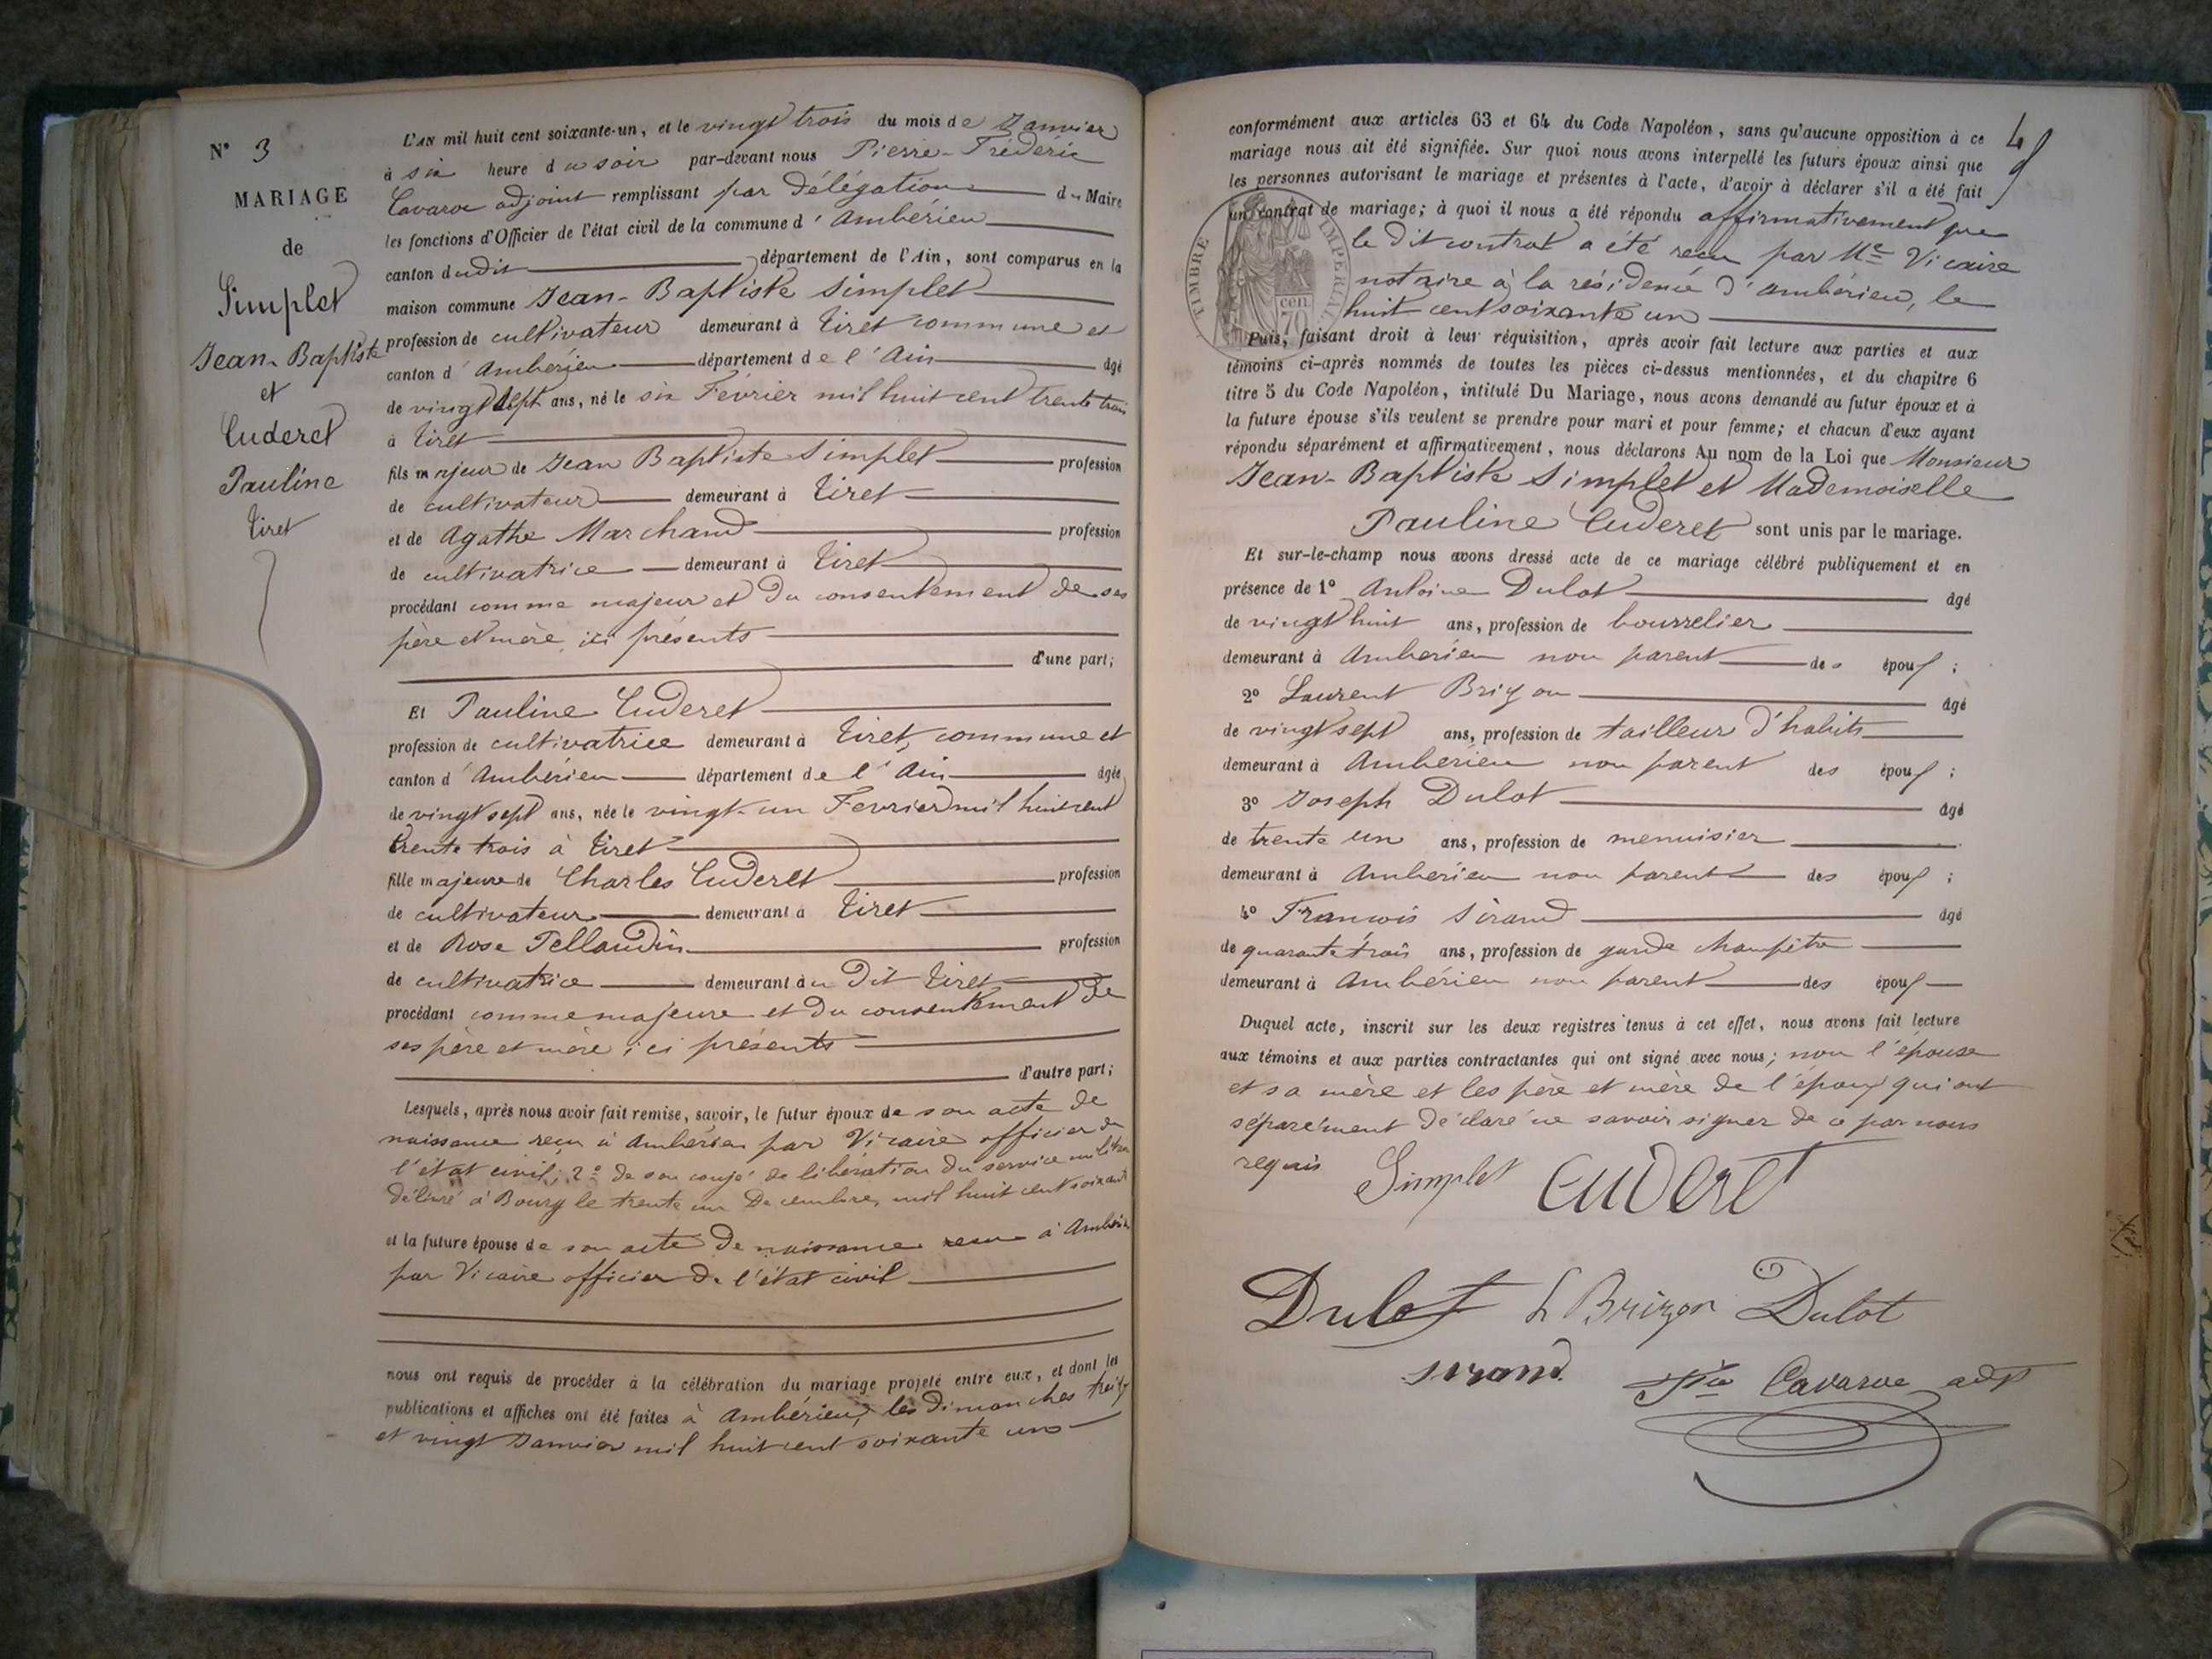 N° 3
MARIAGE
de
Simplet
Jean-Baptiste
et
Cuderet
Pauline
Tiret
L'AN mil huit cent soixante-un, et le vingt trois du mois de Janvier
à six heure du soir par-devant nous Pierre-Fréderic
Cavaroc adjoint remplissant par délégation du Maire
les fonctions d'Officier de l'état civil de la commune d'Ambérieu
canton dudit département de l'Ain, sont comparus en la
maison commune Jean-Baptiste Simplet
profession de cultivateur demeurant à Tiret commune et
canton d'Ambérieu département de l'Ain âgé
de vingt sept ans, né le six Février mil huit cent trente trois
à Tiret
fils majeur de Jean Baptiste Simplet profession
de cultivateur demeurant à Tiret
et de Agathe Marchand profession
de cultivatrice demeurant à Tiret
procédant comme majeur et du consentement de ses
père et mère ici présents
d'une part;
Et Pauline Cuderet
profession de cultivatrice demeurant à Tiret, commune et
canton d'Ambérieu département de l'Ain âgée
de vingt sept ans, née le vingt-un Fevrier mil huit cent
trente trois à Tiret
fille majeure de Charles Cuderet profession
de cultivateur demeurant à Tiret
et de Rose Tellaudin profession
de cultivatrice demeurant au dit Tiret
procédant comme majeure et du consentement de
ses père et mère ici présents
d'autre part;
Lesquels, après nous avoir fait remise, savoir, le futur époux de son acte de
naissance reçu à Ambérieu par Vicaire officier de
l'état civil; 2° de son congé de libération du service militaire
délivré à Bourg le trente un Decembre, mil huit cent soixante
et la future épouse de son acte de naissance reçu à Ambérieu
par Vicaire officier de l'état civil
nous ont requis de procéder à la célébration du mariage projeté entre eux, et dont les
publications et affiches ont été faites à Ambérieu, les dimanches treize
et vingt Janvier mil huit cent soixante un
4
conformément aux articles 63 et 64 du Code Napoléon, sans qu'aucune opposition à ce
mariage nous ait été signifiée. Sur quoi nous avons interpellé les futurs époux ainsi que
les personnes autorisant le mariage et présentes à l'acte, d'avoir à déclarer s'il a été fait
un contrat de mariage; à quoi il nous a été répondu affirmativement que
le dit contrat a été reçu par Me Vicaire
notaire à la résidence d'Ambérieu, le
huit cent soixante un
TIMBRE IMPERIAL
70 cen.
Puis, faisant droit à leur réquisition, après avoir fait lecture aux parties et aux
témoins ci-après nommés de toutes les pièces ci-dessus mentionnées, et du chapitre 6
titre 5 du Code Napoléon, intitulé Du Mariage, nous avons demandé au futur époux et à
la future épouse s'ils veulent se prendre pour mari et pour femme; et chacun d'eux ayant
répondu séparément et affirmativement, nous déclarons Au nom de la Loi que Monsieur
Jean-Baptiste Simplet et Mademoiselle
Pauline Cuderet sont unis par le mariage.
Et sur-le-champ nous avons dressé acte de ce mariage célébré publiquement et en
présence de 1° Antoine Dulot âgé
de vingt huit ans, profession de bourrelier
demeurant à Ambérieu non parent des époux;
2° Laurent Brizon âgé
de vingt sept ans, profession de tailleur d'habits
demeurant à Ambérieu non parent des époux;
3° Joseph Dulot âgé
de trente un ans, profession de menuisier
demeurant à Ambérieu non parent des époux;
4° François Sirand âgé
de quarante trois ans, profession de garde champêtre
demeurant à Ambérieu non parent des époux
Duquel acte, inscrit sur les deux registres tenus à cet effet, nous avons fait lecture
aux témoins et aux parties contractantes qui ont signé avec nous; non l'épouse
et sa mère et les père et mère de l'époux qui ont
séparément déclaré ne savoir signer de ce par nous
requis
Simplet Cuderet
Dulot L Brizon Dulot
Sirand Fric Cavaroc adjt